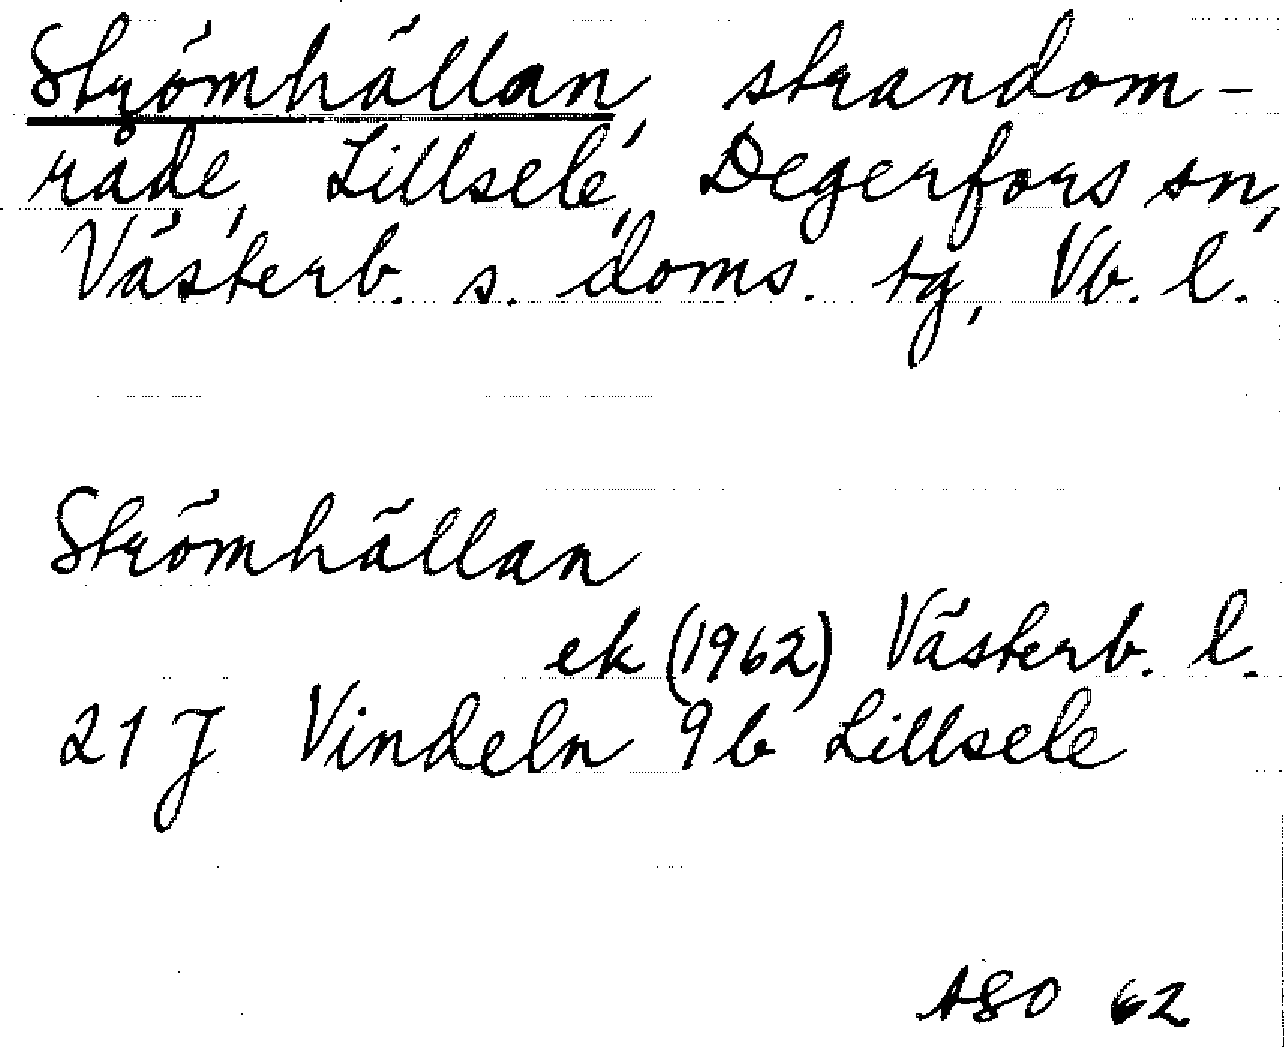 Strömhällan, strandom-
råde, Lillsele, Degerfors sn,
Västerb. s. doms. tg, Vb. l.
Strömhällan
ek (1962) Västerb. l.
21 J Vindeln 9b Lillsele
ASO 62